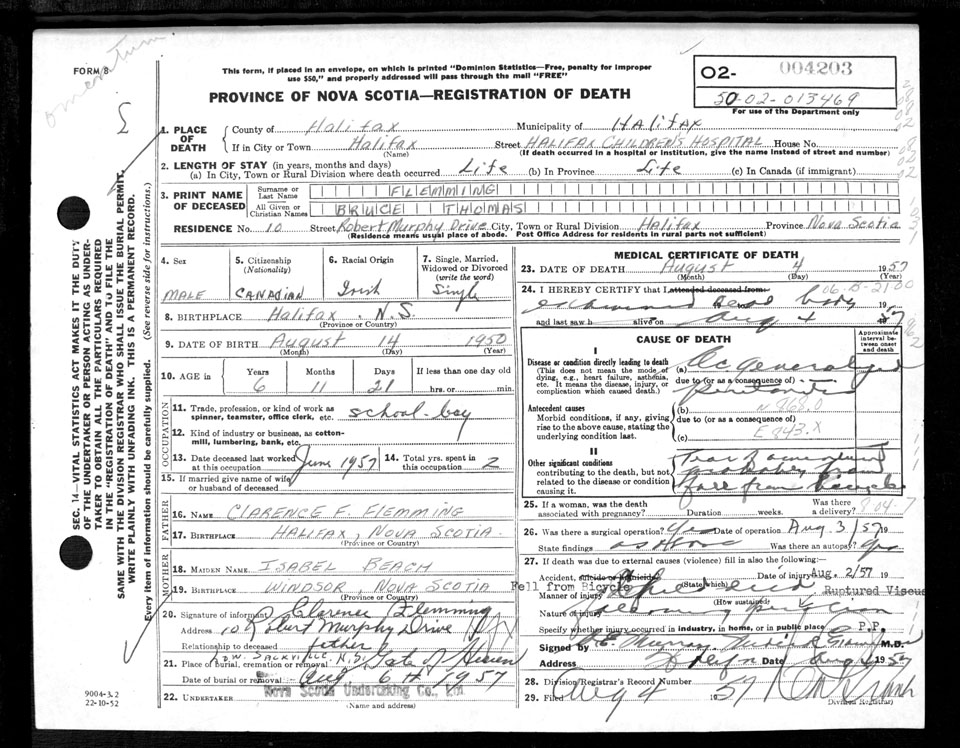 omentum
FORM 8
This form, if placed in an envelope, on which is printed "Dominion Statistics—Free, penalty for improper
use $50," and properly addressed will pass through the mail "FREE"
PROVINCE OF NOVA SCOTIA—REGISTRATION OF DEATH
02- 004203
50-02-013469
For use of the Department only
1. PLACE OF DEATH County of Halifax Municipality of HALIFAX
If in City or Town Halifax (Name) Street HALIFAX CHILDREN'S HOSPITAL House No.
(If death occurred in a hospital or institution, give the name instead of street and number)
2. LENGTH OF STAY (in years, months and days)
(a) In City, Town or Rural Division where death occurred Life (b) In Province Life (c) In Canada (if immigrant)
3. PRINT NAME OF DECEASED Surname or Last Name FLEMMING
All Given or Christian Names BRUCE THOMAS
RESIDENCE No. 10 Street Robert Murphy Drive City, Town or Rural Division Halifax Province Nova Scotia
(Residence means usual place of abode. Post Office Address for residents in rural parts not sufficient)
4. Sex MALE
5. Citizenship (Nationality) CANADIAN
6. Racial Origin Irish
7. Single, Married, Widowed or Divorced (write the word) Single
8. BIRTHPLACE Halifax, N.S.
(Province or Country)
9. DATE OF BIRTH August 14 1950
(Month) (Day) (Year)
10. AGE in Years Months Days If less than one day
6 11 21 hrs. or min.
OCCUPATION
11. Trade, profession, or kind of work as spinner, teamster, office clerk, etc. school-boy
12. Kind of industry or business, as cotton-mill, lumbering, bank, etc.
13. Date deceased last worked at this occupation June 1957 14. Total yrs. spent in this occupation 2
15. If married give name of wife or husband of deceased
FATHER
16. NAME CLARENCE F. FLEMMING
17. BIRTHPLACE HALIFAX, NOVA SCOTIA
(Province or Country)
MOTHER
18. MAIDEN NAME ISABEL BEACH
19. BIRTHPLACE WINDSOR, NOVA SCOTIA
(Province or Country)
20. Signature of informant Clarence Flemming
Address 10 Robert Murphy Drive Hfx
Relationship to deceased father
LOW. SACKVILLE N.S.
21. Place of burial, cremation or removal Gate of Heaven
Date of burial or removal Aug 6th 1957
22. UNDERTAKER Nova Scotia Undertaking Co., Ltd.
(Name and address)
MEDICAL CERTIFICATE OF DEATH
23. DATE OF DEATH August 4 1957
(Month) (Day) (Year)
24. I HEREBY CERTIFY that I attended deceased from: 06-B-2100
examined dead body 19
and last saw h alive on Aug 4 1957
CAUSE OF DEATH
Approximate interval between onset and death
I
Disease or condition directly leading to death
(This does not mean the mode of dying, e.g., heart failure, asthenia, etc. It means the disease, injury, or complication which caused death.)
(a) Ac generalized
due to (or as a consequence of)
peritonitis
Antecedent causes
Morbid conditions, if any, giving rise to the above cause, stating the underlying condition last.
(b) N 868.0
due to (or as a consequence of)
(c) E 843.X
II
Other significant conditions
contributing to the death, but not related to the disease or condition causing it.
Tear of omentum
probably from
fall from bicycle
25. If a woman, was the death associated with pregnancy? Duration weeks. Was there a delivery?
26. Was there a surgical operation? Yes Date of operation Aug 3/57 19
State findings as above Was there an autopsy? Yes
27. If death was due to external causes (violence) fill in also the following:
Accident, suicide or homicide (State which) Date of injury Aug. 2/57 19
Fell from Bicycle
Manner of injury (How sustained) Ruptured Viscus
Nature of injury
Specify whether injury occurred in industry, in home, or in public place P.P.
Signed by Murray M.D.
Address Hfx Date Aug 4 1957
28. Division Registrar's Record Number
29. Filed Aug 4 1957
Division Registrar
SEC. 14—VITAL STATISTICS ACT MAKES IT THE DUTY
OF THE UNDERTAKER OR PERSON ACTING AS UNDER-
TAKER TO OBTAIN ALL THE PARTICULARS REQUIRED
IN THE "REGISTRATION OF DEATH" AND TO FILE THE
SAME WITH THE DIVISION REGISTRAR WHO SHALL ISSUE THE BURIAL PERMIT.
WRITE PLAINLY WITH UNFADING INK. THIS IS A PERMANENT RECORD.
Every item of information should be carefully supplied. (See reverse side for instructions.)
9004-3.2
22-10-52